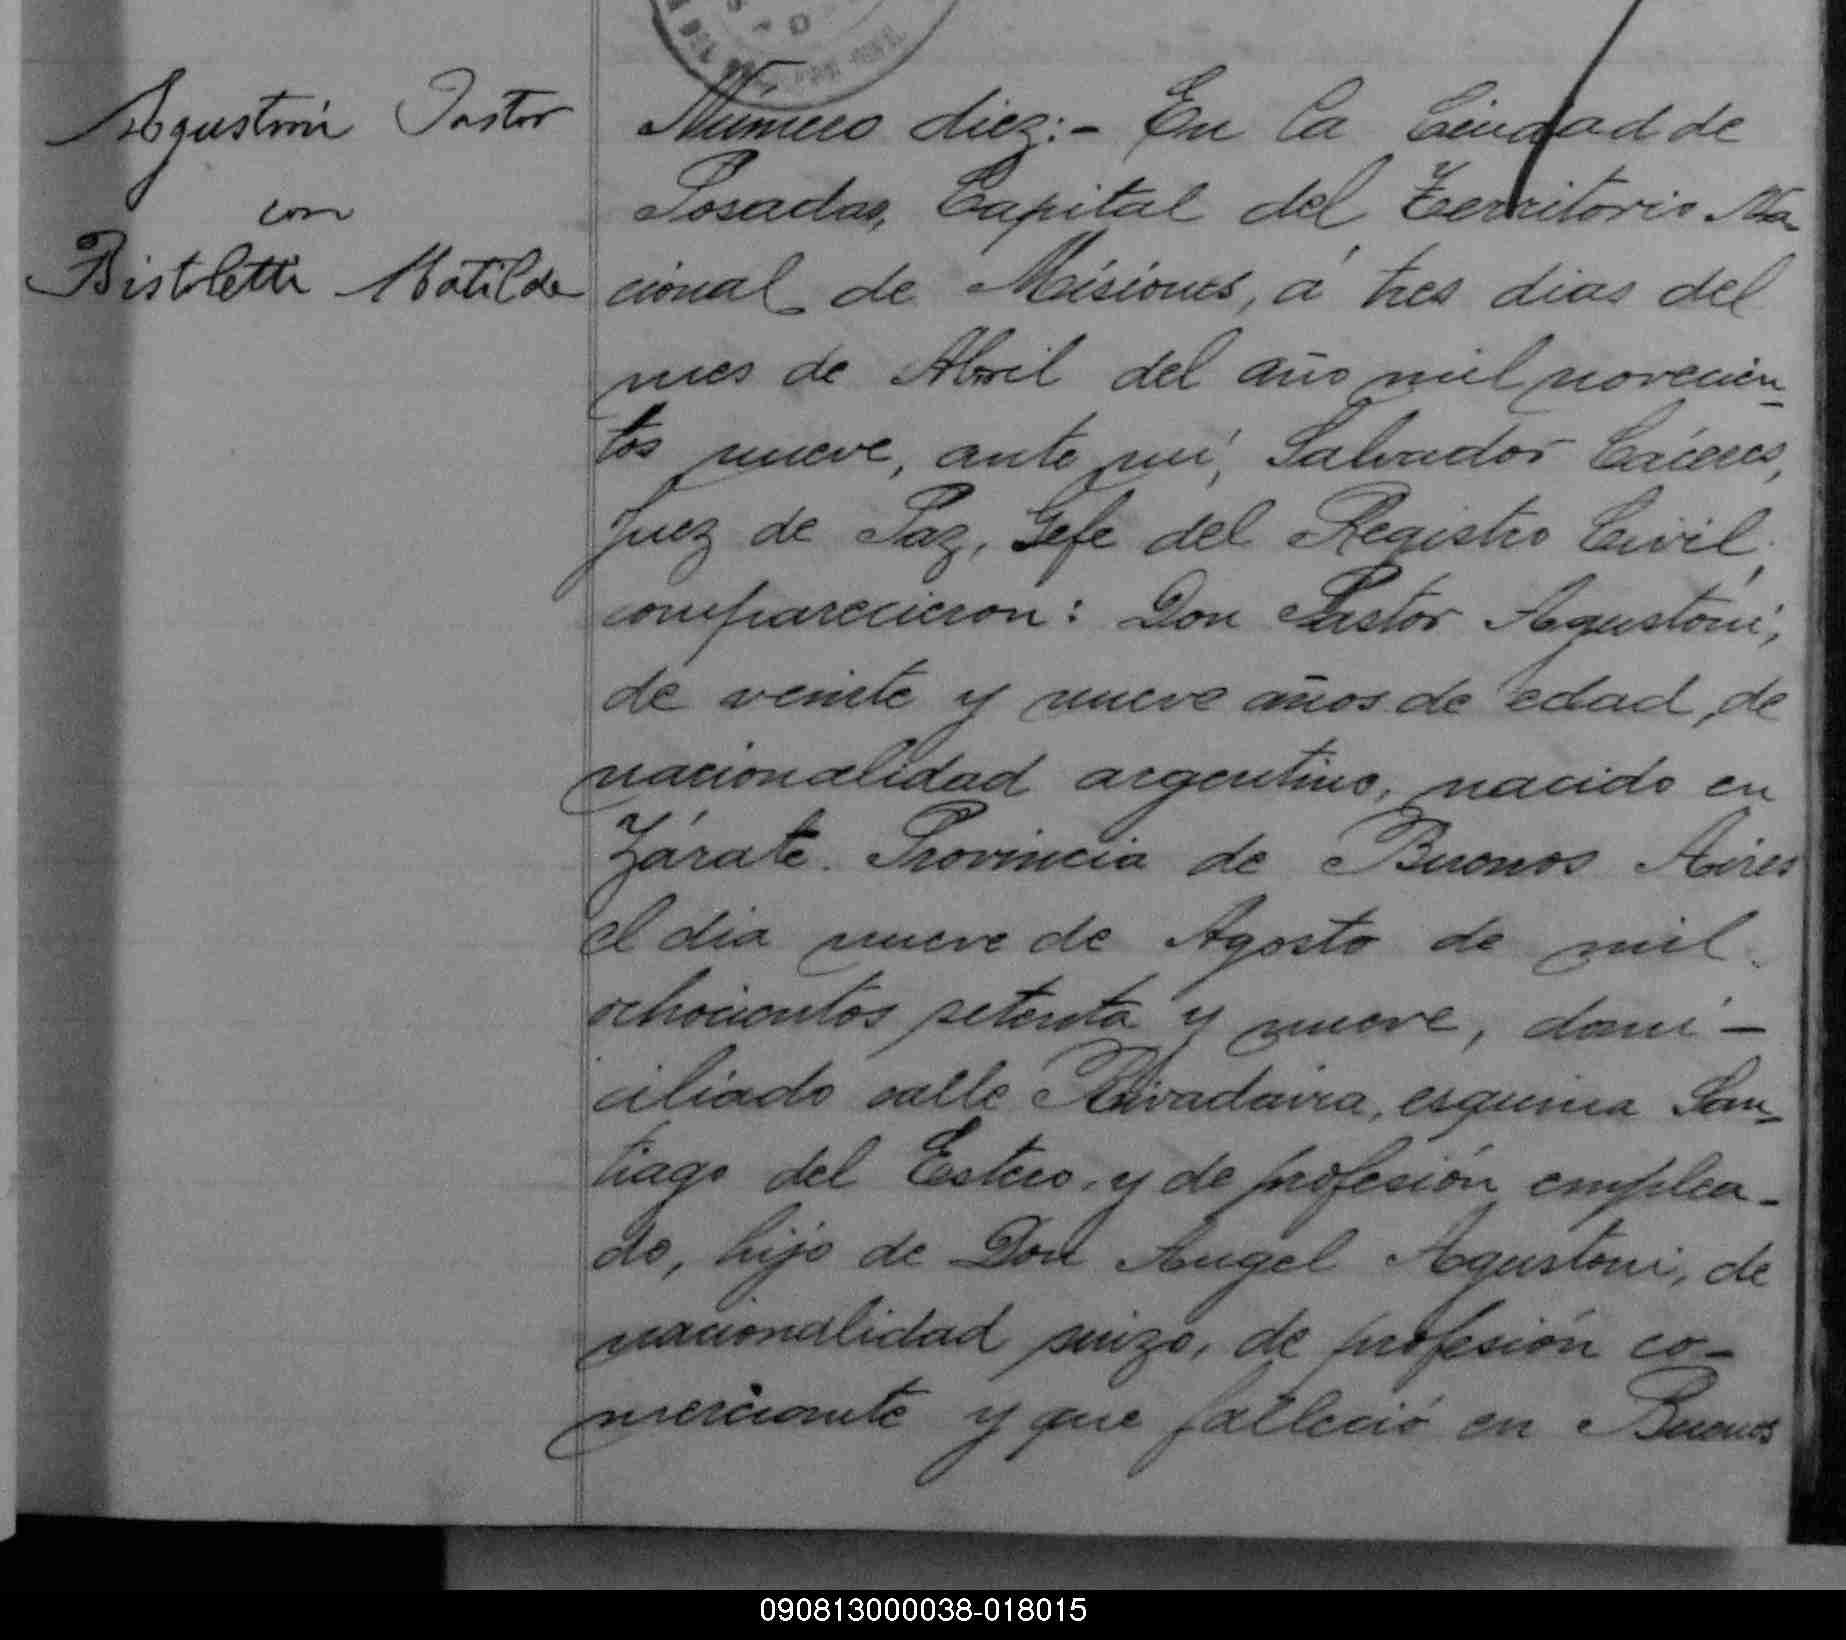 Agustoni Pastor
con
Bistoletti Matilde
Número diez:- En la Ciudad de
Posadas, Capital del Territorio Na-
cional de Misiones, á tres dias del
mes de Abril del año mil novecien-
tos nueve, ante mí, Salvador Cáceres,
Juez de Paz, Gefe del Registro Civil,
comparecieron: Don Pastor Agustoni,
de veinte y nueve años de edad, de
nacionalidad argentino, nacido en
Zárate. Provincia de Buenos Aires
el dia nueve de Agosto de mil
ochocientos setenta y nueve, domi-
ciliado calle Rivadavia, esquina San-
tiago del Estero, y de profesión emplea-
do, hijo de Don Angel Agustoni, de
nacionalidad suizo, de profesión co-
merciante y que falleció en Buenos
090813000038-018015